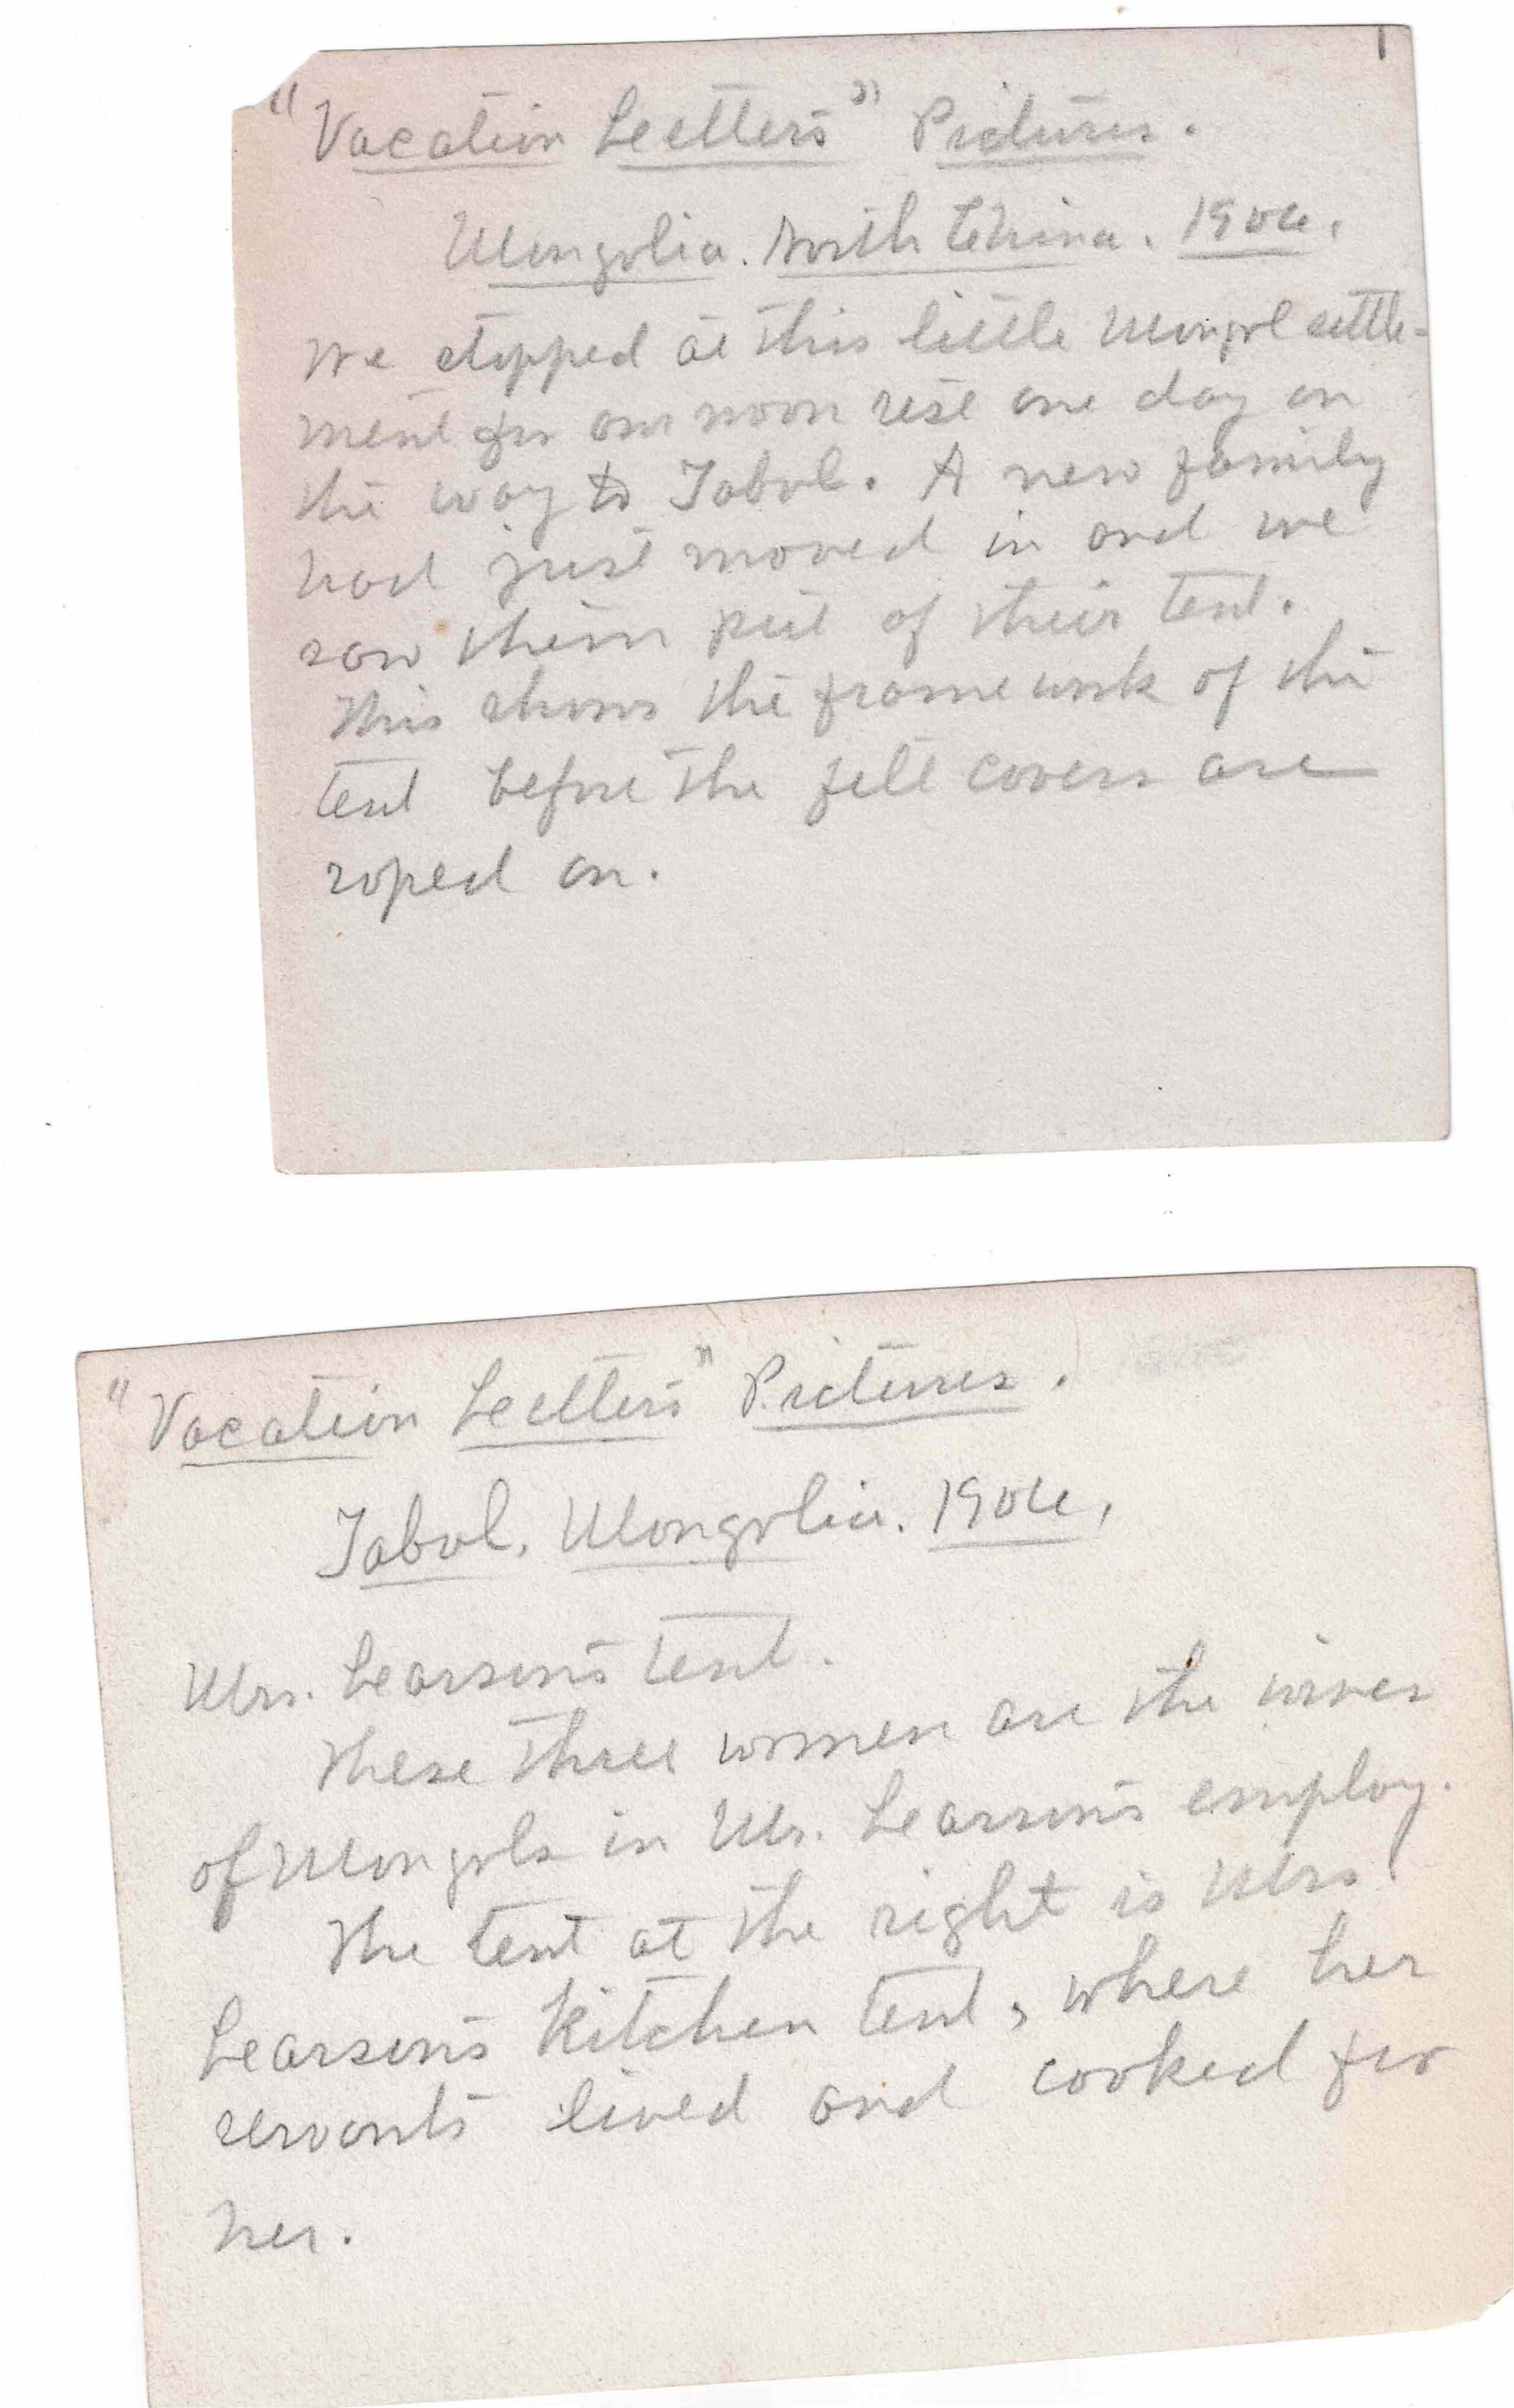 1
"Vacation Letters" Pictures.
Mongolia. North China. 1904.
We stopped at this little Mongol settle-
ment for our noon rest one day on
the way to Tabol. A new family
had just moved in and we
saw them put of their tent.
This shows the framework of the
tent before the felt covers are
roped on.
"Vacation Letters" Pictures.
Tabol. Mongolia. 1904.
Mrs. Larson's tent.
These three women are the wives
of Mongols in Mr. Larson's employ.
The tent at the right is Mrs.
Larson's kitchen tent, where her
servants lived and cooked for
her.